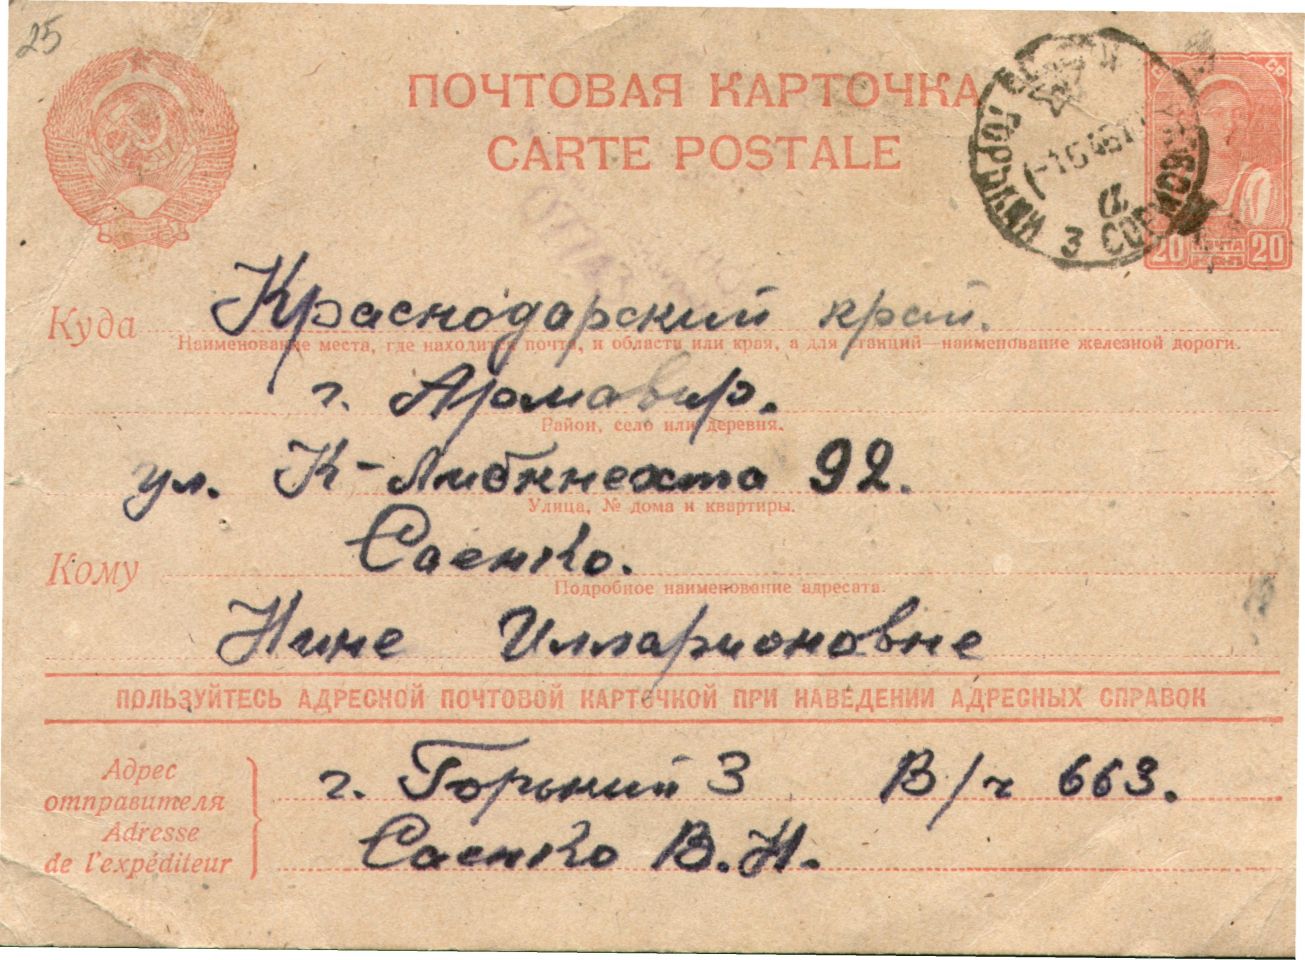 25
ПОЧТОВАЯ КАРТОЧКА
CARTE POSTALE
ГОРЬКИЙ 3 СОРМОВО
20 ПОЧТА 20
Куда Краснодарский край.
Наименование места, где находится почта, и области или края, а для станций—наименование железной дороги.
г. Армавир.
Район, село или деревня.
ул. К-Либкнехта 92.
Улица, № дома и квартиры.
Кому Саенко.
Подробное наименование адресата.
Нине Илларионовне
ПОЛЬЗУЙТЕСЬ АДРЕСНОЙ ПОЧТОВОЙ КАРТОЧКОЙ ПРИ НАВЕДЕНИИ АДРЕСНЫХ СПРАВОК
Адрес
отправителя
Adresse
de l'expéditeur
г. Горький 3 В/ч 663.
Саенко В.Н.